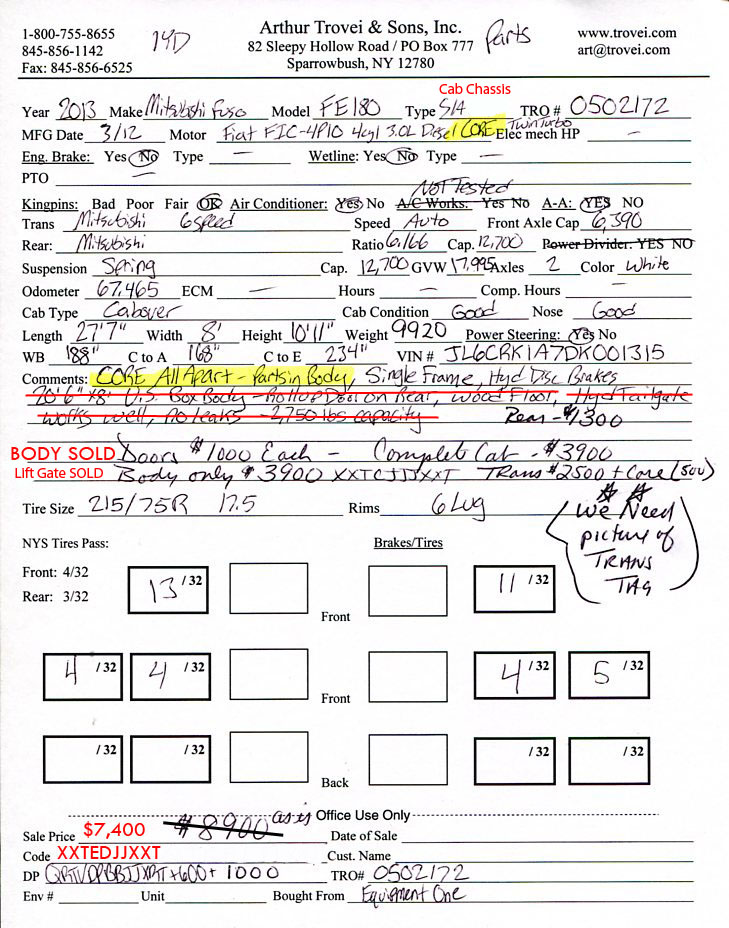 1-800-755-8655
845-856-1142
Fax: 845-856-6525
14D
Arthur Trovei & Sons, Inc.
82 Sleepy Hollow Road / PO Box 777
Sparrowbush, NY 12780
Parts
www.trovei.com
art@trovei.com
Cab Chassis
Year 2013 Make Mitsubishi Fuso Model FE180 Type S/A TRO # 0502172
MFG Date 3/12 Motor Fiat FIC-4P10 4cyl 3.0L Diesel CORE Twin Turbo Elec mech HP —
Eng. Brake: Yes No Type — Wetline: Yes No Type —
PTO —
Not Tested
Kingpins: Bad Poor Fair OK Air Conditioner: Yes No A/C Works: Yes No A-A: YES NO
Trans Mitsubishi 6 speed Speed Auto Front Axle Cap 6,390
Rear: Mitsubishi Ratio 6.166 Cap. 12,700 Power Divider: YES NO
Suspension Spring Cap. 12,700 GVW 17,995 Axles 2 Color White
Odometer 67,465 ECM — Hours — Comp. Hours —
Cab Type Cabover Cab Condition Good Nose Good
Length 27'7" Width 8' Height 10'11" Weight 9920 Power Steering: Yes No
WB 188" C to A 168" C to E 234" VIN # JL6CRK1A7DK001315
Comments: CORE All Apart - Parts in Body, Single Frame, Hyd Disc Brakes
20'6" x 8' U.S. Box Body - Rollup Door on Rear, Wood Floor, Hyd Tailgate
works well, no leaks - 2,750 lbs capacity Rear - $1300
BODY SOLD Doors $1000 Each - Complete Cab - $3900
Lift Gate SOLD Body only $3900 XXTCJJXXT Trans $2500 + Core (500)
Tire Size 215/75R 17.5 Rims 6 Lug
We Need
picture of
TRANS
TAG
NYS Tires Pass:
Brakes/Tires
Front: 4/32
Rear: 3/32
13 /32 11 /32
Front
4 /32 4 /32 4 /32 5 /32
Front
/32 /32 /32 /32
Back
Office Use Only
Sale Price $7,400 $8900 as is Date of Sale
Code XXTEDJJXXT Cust. Name
DP +600+1000 TRO# 0502172
Env # Unit Bought From Equipment One